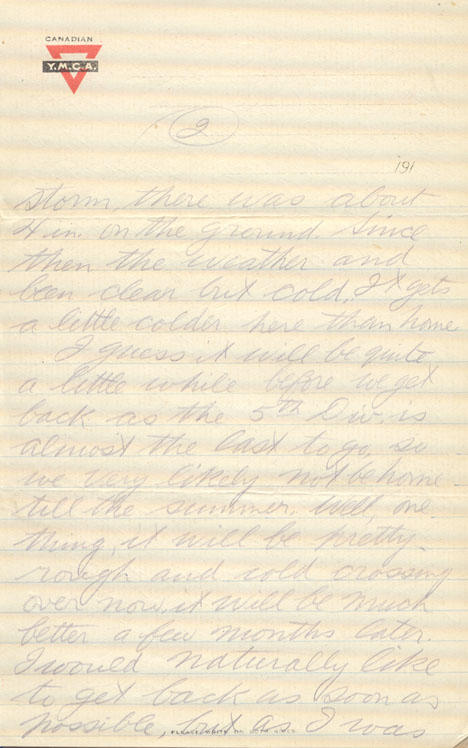 CANADIAN
Y.M.C.A.
2
191
storm, there was about
4 in. on the ground. Since
then the weather and
been clear but cold. It gets
a little colder here than home
I guess it will be quite
a little while before we get
back as the 5th Div. is
almost the last to go, so
we very likely not be home
till the summer. Well, one
thing, it will be pretty
rough and cold crossing
over now, it will be much
better a few months later.
I would naturally like
to get back as soon as
possible, but as I was
PLEASE WRITE ON BOTH SIDES